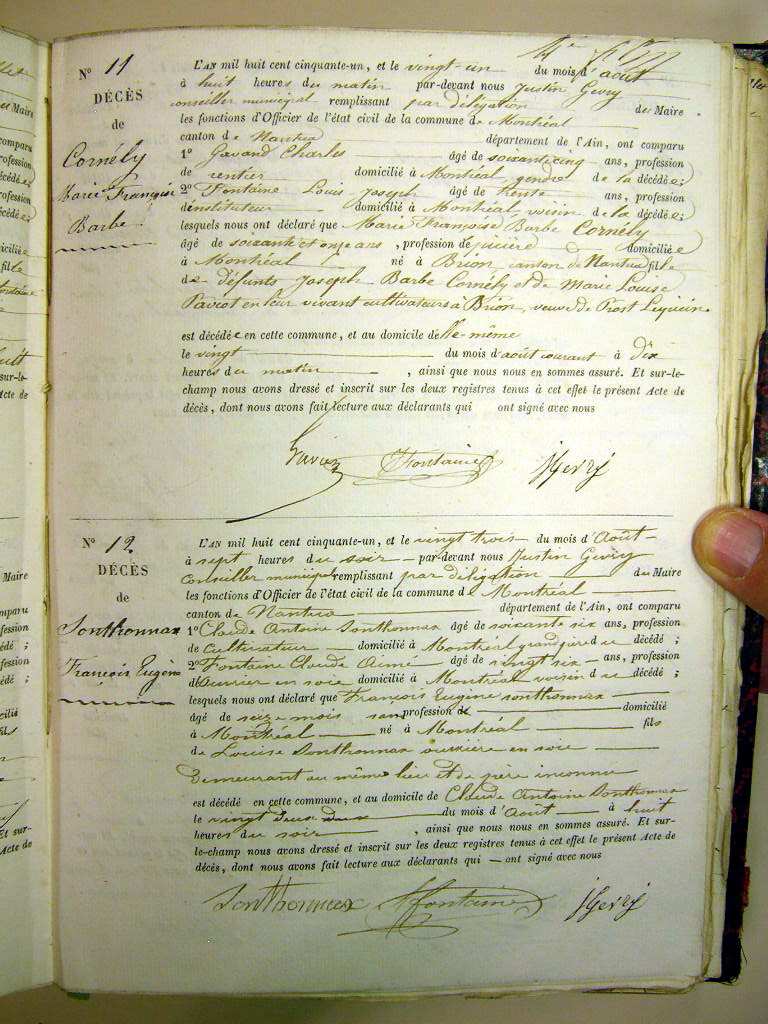 N° 11
DÉCÈS
de
Cornély
Marie Françoise
Barbe
L'AN mil huit cent cinquante-un, et le vingt un du mois d'août
à huit heures du matin par-devant nous Justin Gevry
conseiller municipal remplissant par délégation de Maire
les fonctions d'Officier de l'état civil de la commune de Montréal
canton de Nantua département de l'Ain, ont comparu
1° Charles âgé de soixante cinq ans, profession
de rentier domicilié à Montréal, gendre de la décédée;
2° Fontaine Louis Joseph âgé de trente ans, profession
d'instituteur domicilié à Montréal, voisin de la décédée;
lesquels nous ont déclaré que Marie Françoise Barbe Cornély
âgé de soixante et onze ans, profession de domiciliée
à Montréal né à Brion, canton de Nantua fille
de défunts Joseph Barbe Cornély et de Marie Louise
Paviot en leur vivant cultivateurs à Brion, veuve de Prost
est décédée en cette commune, et au domicile d'elle-même
le vingt du mois d'août courant à dix
heures du matin, ainsi que nous nous en sommes assuré. Et sur-le-
champ nous avons dressé et inscrit sur les deux registres tenus à cet effet le présent Acte de
décès, dont nous avons fait lecture aux déclarants qui ont signé avec nous
Fontaine JGevry
N° 12
DÉCÈS
de
Sonthonnax
François Eugène
L'AN mil huit cent cinquante-un, et le vingt trois du mois d'Août
à sept heures du soir par-devant nous Justin Gevry
Conseiller municipal remplissant par délégation de Maire
les fonctions d'Officier de l'état civil de la commune de Montréal
canton de Nantua département de l'Ain, ont comparu
1° Claude Antoine Sonthonnax âgé de soixante six ans, profession
de Cultivateur domicilié à Montréal grand père du décédé;
2° Fontaine Claude Aimé âgé de vingt six ans, profession
d'ouvrier en soie domicilié à Montréal voisin du décédé;
lesquels nous ont déclaré que François Eugène Sonthonnax
âgé de seize mois sans profession de domicilié
à Montréal né à Montréal fils
de Louise Sonthonnax ouvrière en soie
demeurant au même lieu et de père inconnu
est décédé en cette commune, et au domicile de Claude Antoine Sonthonnax
le vingt deux du mois d'Août à huit
heures du soir, ainsi que nous nous en sommes assuré. Et sur-
le-champ nous avons dressé et inscrit sur les deux registres tenus à cet effet le présent Acte de
décès, dont nous avons fait lecture aux déclarants qui ont signé avec nous
Sonthonnax Fontaine JGevry